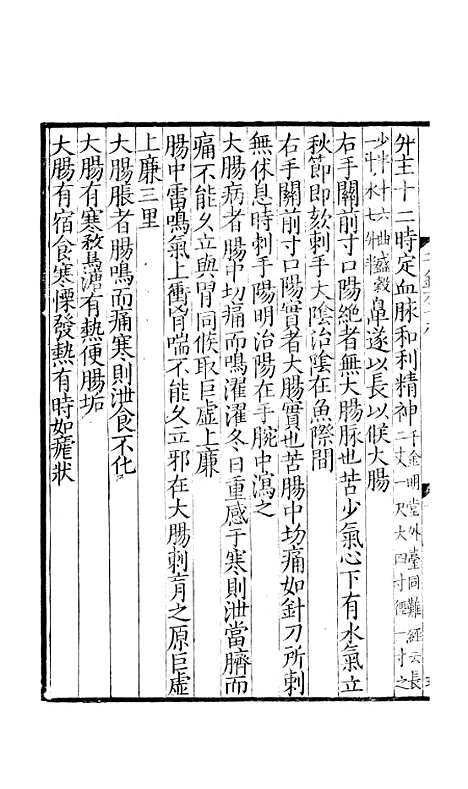 升主十二時定血脉和利精神千金明堂外臺同難經云長二丈一尺大四寸徑一寸之
少半十六曲盛穀一斗水七升半鼻遂以長以候大腸
右手關前寸口陽絶者無大腸脉也苦少氣心下有水氣立
秋節即欬刺手大陰治陰在魚際間
右手關前寸口陽實者大腸實也苦腸中切痛如針刀所刺
無休息時刺手陽明治陽在手腕中瀉之
大腸病者腸中切痛而鳴濯濯冬日重感于寒則泄當臍而
痛不能久立與胃同候取巨虛上廉
腸中雷鳴氣上衝胷喘不能久立邪在大腸刺肓之原巨虛
上廉三里
大腸脹者腸鳴而痛寒則泄食不化
大腸有寒鶩溏有熱便腸垢
大腸有宿食寒慄發熱有時如瘧狀